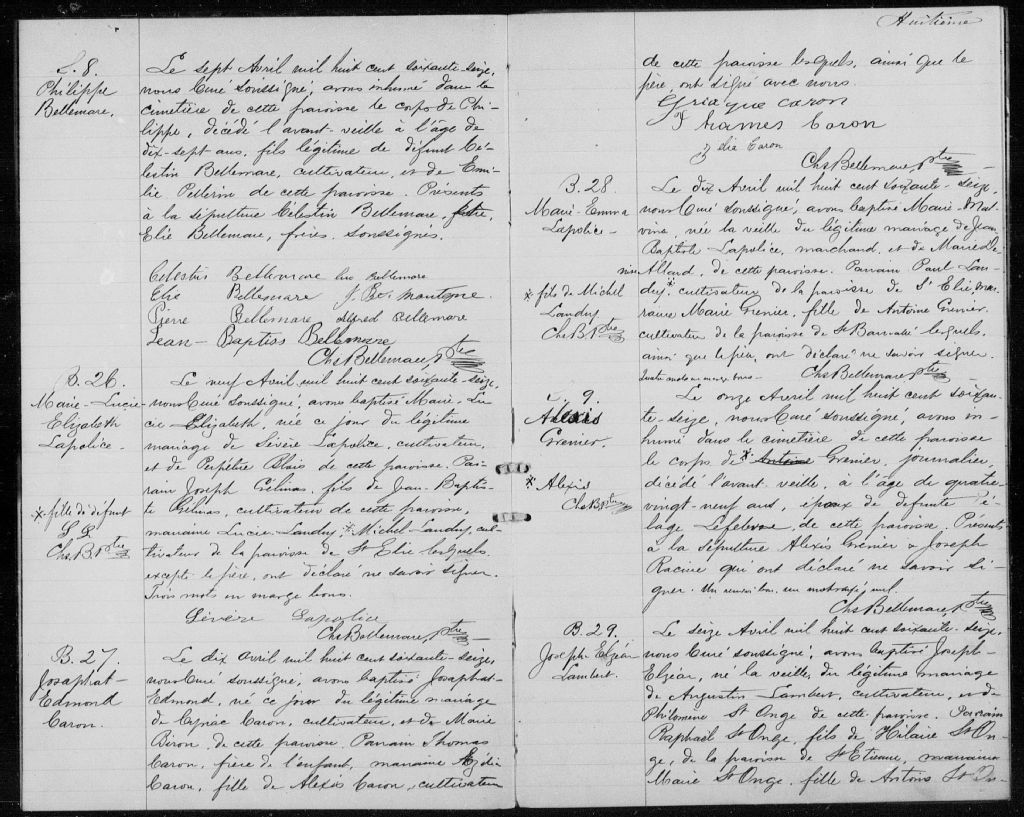 S. 8.
Philippe
Bellemare,
Le sept Avril mil huit cent soixante-seize,
nous Curé soussigné, avons inhumé dans le
cimetière de cette paroisse le corps de Phi-
lippe, décédé l'avant-veille à l'âge de
dix-sept ans, fils légitime de défunt Cé-
lestin Bellemare, cultivateur, et de Emi-
lie Pellerin de cette paroisse. Présents
à la sépulture Célestin Bellemare,
Elie Bellemare, frères, soussignés.
Celestin Bellemare Luc Bellemare
Elie Bellemare J. Bte Montagne.
Pierre Bellemare Alfred Bellemare
Jean-Baptiss Bellemare
Chs Bellemare, Ptre
B. 26.
Marie-Lucie
Elizabeth
Lapolice.
Le neuf Avril mil huit cent soixante-seize,
nous Curé soussigné, avons baptisé Marie-Lu-
cie Elizabeth, née ce jour du légitime
mariage de Sévère Lapolice, cultivateur,
et de Perpétue Blais de cette paroisse. Par-
rain Joseph Gélinas, fils de Jean-Baptis-
te Gélinas, cultivateur de cette paroisse,
marraine Lucie Landry, * Michel Landry, cul-
tivateur de la paroisse de St Elie lesquels,
excepté le père, ont déclaré ne savoir signer.
Trois mots en marge bons.
* fille de défunt
Chs. B. Ptre
Sévère Lapolice
Chs Bellemare, Ptre
B. 27.
Josaphat-
Edmond
Caron.
Le dix Avril mil huit cent soixante-seize,
nous Curé soussigné, avons baptisé Josaphat-
Edmond, né ce jour du légitime mariage
de Cyriac Caron, cultivateur, et de Marie
Biron, de cette paroisse. Parrain Thomas
Caron, frère de l'enfant, marraine
Caron, fille de Alexis Caron, cultivateur
Huitième
de cette paroisse lesquels, ainsi que le
père, ont signé avec nous.
Cyriaque Caron
Thames Caron
Zelia Caron
Chs Bellemare, Ptre
B. 28.
Marie-Emma
Lapolice
Le dix Avril mil huit cent soixante-seize,
nous Curé soussigné, avons baptisé Marie-Mal-
vina, née la veille du légitime mariage de Jean-
Baptiste Lapolice, marchand, et de Marie De-
nise Allard, de cette paroisse. Parrain Paul Lan-
dry,* cultivateur de la paroisse de St Elie mar-
raine Marie Grenier, fille de Antoine Grenier,
cultivateur de la paroisse de St Barnabé lesquels,
ainsi que le père, ont déclaré ne savoir signer.
Quatre mots en marge bons
Chs Bellemare, Ptre
* fils de Michel
Landry
Chs B. Ptre
S. 9.
Alexis
Grenier.
Le onze Avril mil huit cent soixan-
te-seize, nous Curé soussigné, avons in-
humé dans le cimetière de cette paroisse
le corps de * Antoine Grenier, journalier,
décédé l'avant-veille, à l'âge de quatre-
vingt-neuf ans, époux de défunte Pé-
lagie Lefebvre, de cette paroisse. Présents
à la sépulture Alexis Grenier & Joseph
Racine qui ont déclaré ne savoir si-
gner. Un renvoi bon. un mot rayé nul.
* Alexis
Chs B. Ptre
Chs Bellemare, Ptre
B. 29.
Joseph Elzéar
Lambert.
Le seize Avril mil huit cent soixante-seize,
nous Curé soussigné, avons baptisé Joseph-
Elzéar, né la veille, du légitime mariage
de Augustin Lambert, cultivateur, et de
Philomène St Onge de cette paroisse. Parrain
Raphaël St Onge, fils de Hilaire St On-
ge, de la paroisse de St Etienne, marraine
Marie St Onge, fille de Antoine St On-